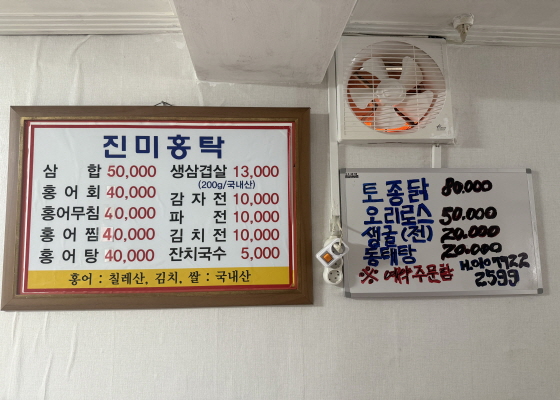 진미홍탁
삼 합 50,000
홍어회 40,000
홍어무침 40,000
홍어찜 40,000
홍어탕 40,000
생삼겹살 13,000
(200g/국내산)
감자전 10,000
파 전 10,000
김치전 10,000
잔치국수 5,000
홍어 : 칠레산, 김치, 쌀 : 국내산
토종닭 80.000
오리로스 50.000
생굴(전) 20.000
동태탕 20.000
※ 주문함
H.010 7922
2599